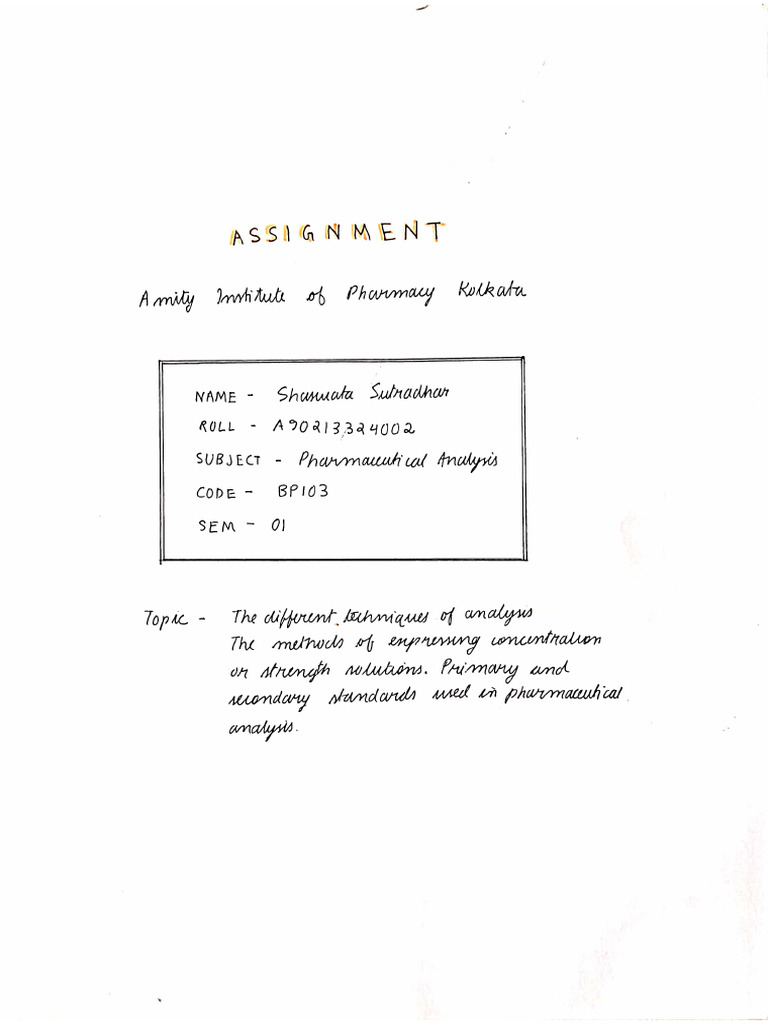 ASSIGNMENT
Amity Institute of Pharmacy Kolkata
NAME - Shaswata Sutradhar
ROLL - A90213324002
SUBJECT - Pharmaceutical Analysis
CODE - BP103
SEM - 01
Topic - The different techniques of analysis
The methods of expressing concentration
or strength solutions. Primary and
secondary standards used in pharmaceutical
analysis.